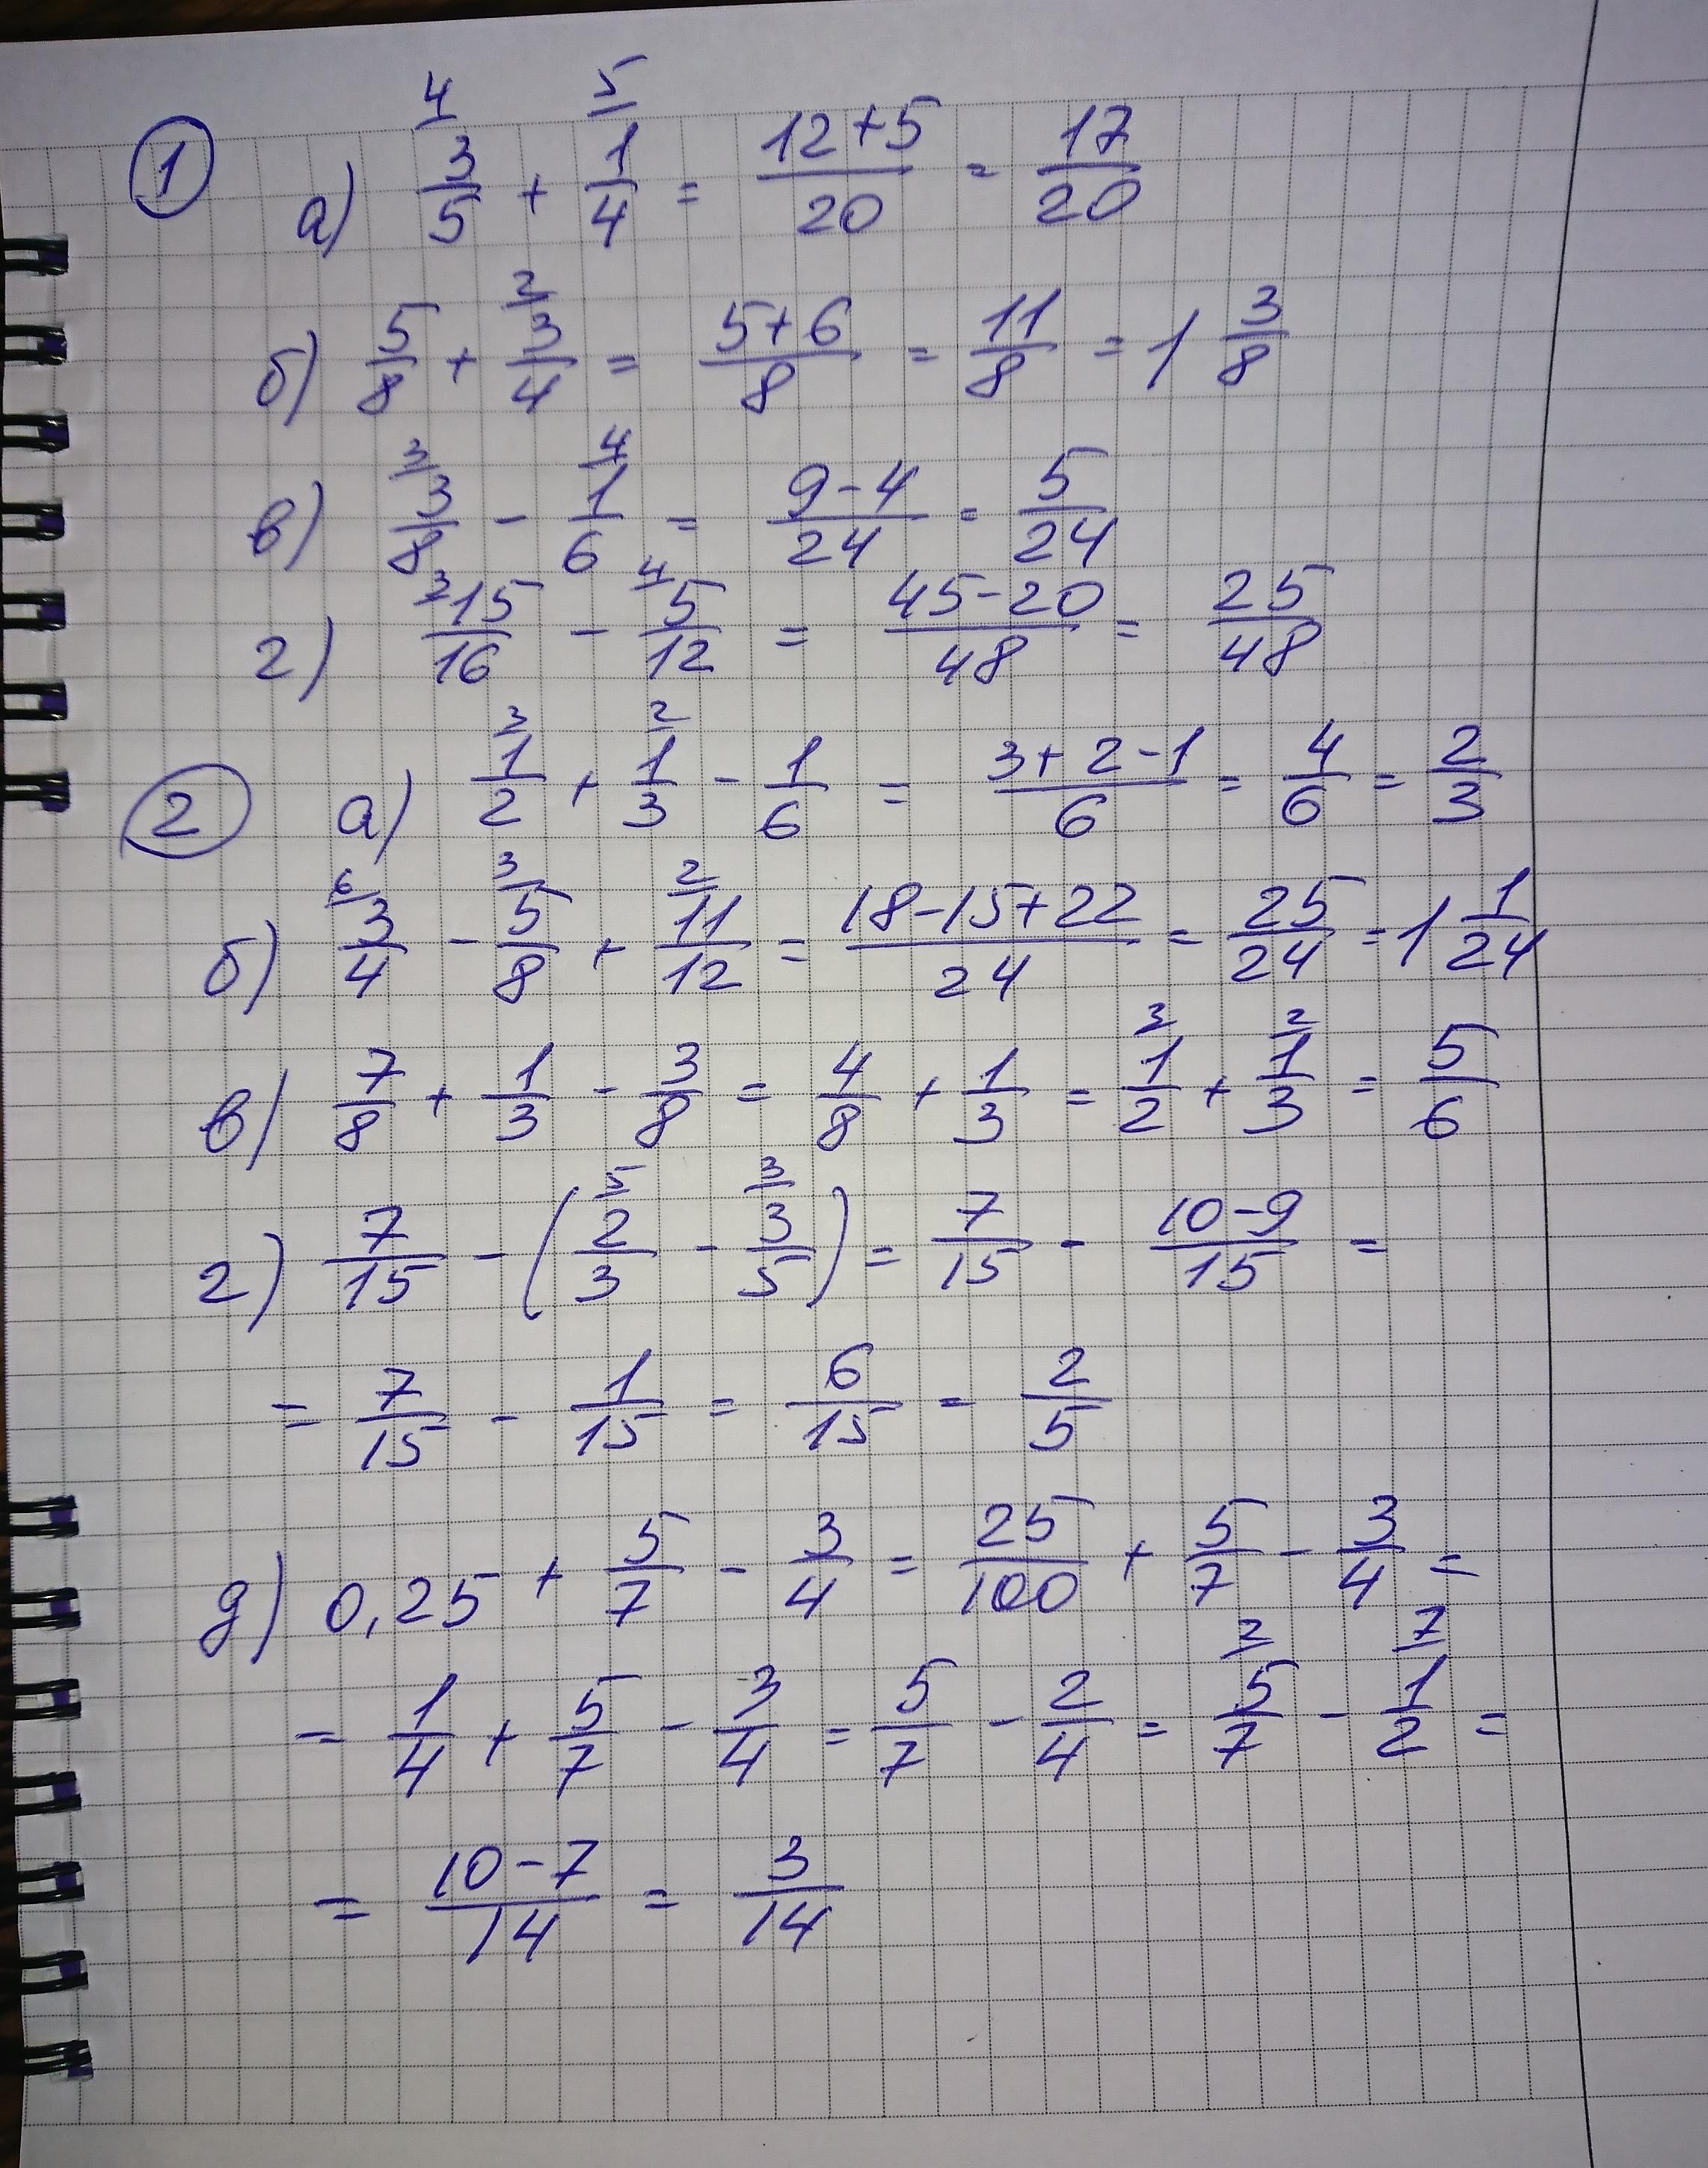 1 а) 4/ 3/5 + 5/ 1/4 = (12+5)/20 = 17/20
б) 5/8 + 2/ 3/4 = (5+6)/8 = 11/8 = 1 3/8
в) 3/ 3/8 - 4/ 1/6 = (9-4)/24 = 5/24
г) 3/ 15/16 - 4/ 5/12 = (45-20)/48 = 25/48
2 а) 3/ 1/2 + 2/ 1/3 - 1/6 = (3+2-1)/6 = 4/6 = 2/3
б) 6/ 3/4 - 3/ 5/8 + 2/ 11/12 = (18-15+22)/24 = 25/24 = 1 1/24
в) 7/8 + 1/3 - 3/8 = 4/8 + 1/3 = 3/ 1/2 + 2/ 1/3 = 5/6
г) 7/15 - (5/ 2/3 - 3/ 3/5) = 7/15 - (10-9)/15 =
= 7/15 - 1/15 = 6/15 = 2/5
д) 0,25 + 5/7 - 3/4 = 25/100 + 5/7 - 3/4 =
= 1/4 + 5/7 - 3/4 = 5/7 - 2/4 = 2/ 5/7 - 7/ 1/2 =
= (10-7)/14 = 3/14